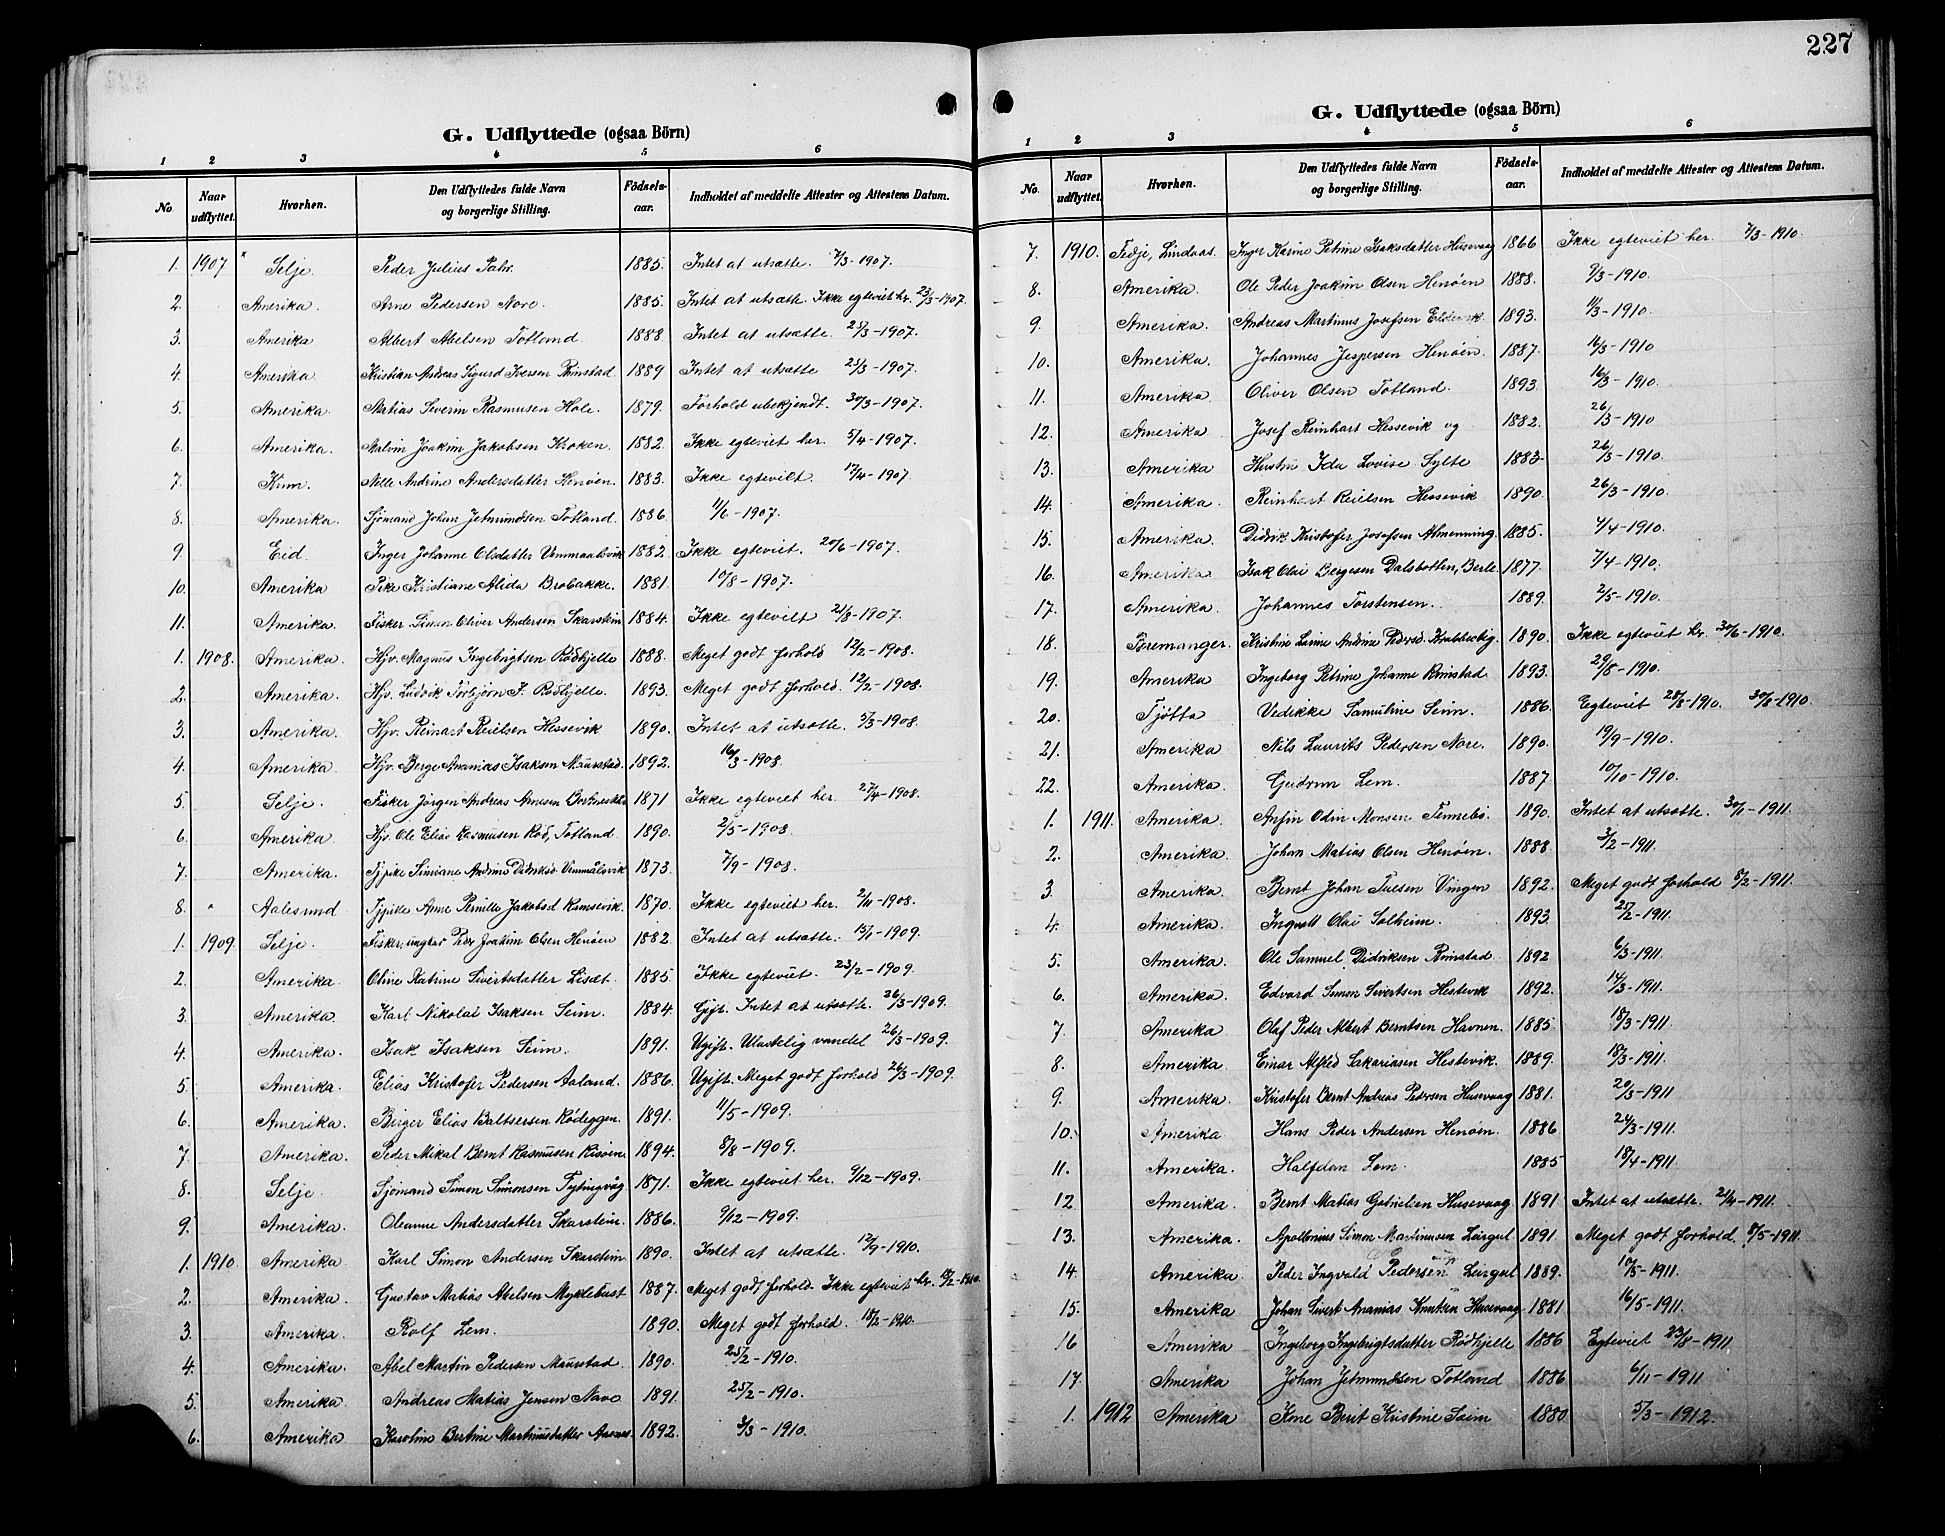 227
G. Udflyttede (ogsaa Börn)
1 2 3 4 5 6
No. Naar udflyttet. Hvorhen. Den Udflyttedes fulde Navn og borgerlige Stilling. Födsels-aar. Indholdet af meddelte Attester og Attestens Datum.
1. 1907 Selje. Peder Julius 1885. Intet at utsætte. 1907.
2. Amerika. Arne Pedersen Nore. 1885. Intet at utsætte. Ikke egteviet hr. 23/3-1907.
3. Amerika Albert Abelsen Totland. 1888 Intet at utsætte. 25/3-1907.
4. Amerika. Kristian Andreas Sigurd Iversen Rimstad 1889 Intet at utsætte 25/3-1907.
5. Amerika. Matias Severin Rasmusen Hole. 1879. Forhold ubekjendt. 30/3-1907.
6. Amerika. Malvin Joakim Jakobsen Kroken. 1882. Ikke egteviet her. 5/4-1907.
7. Kinn. Andrine Andersdatter Henöen. 1883. Ikke egteviet. 17/4-1907
8. Amerika. Sjömand Johan Jetmundsen Totland. 1886. 1/6-1907.
9. Eid. Inger Johanne Olsdatter Vemmaalsvik 1882. Ikke egteviet. 20/6-1907.
10. Amerika Pike Kristiane Alida Brobakke. 1881. 10/8-1907.
11. Amerika. Fisker Simon Oliver Andersen Skarstein 1884. Ikke egteviet 21/8-1907.
1. 1908. Amerika. Hjv. Magnus Ingebrigtsen Rödhjelle 1888. Meget godt forhold 12/2-1908.
2. Amerika. Hjv. Ludvik Torbjörn I. Rödhjelle. 1893. Meget godt forhold. 12/2-1908.
3. Amerika. Hjv. Reinart Reielsen Hessevik 1890. Intet at utsætte. 5/3-1908.
4. Amerika. Hjv. Berge Ananias Isaksen Maurstad. 1892. 16/3-1908.
5. Selje. Fisker Jörgen Andreas Arnesen 1871 Ikke egteviet her. 27/4-1908.
6. Amerika. Hjv. Ole Elias Rasmusen Röd, Totland. 1890. 2/5-1908.
7. Amerika. Tjpike Simiane Andrine Didriksd. Vemmålsvik 1873. 7/9-1908.
8. " Aalesund Tjpike Anne Pernille Jakobsd Rimsevik. 1870. Ikke egteviet her. 2/11-1908.
1. 1909. Selje. Fisker, ungkar Peder Joakim Olsen Henöen 1882. Intet at utsætte. 15/1-1909.
2. Amerika. Oline Katrine Sivertsdatter Lisæt. 1885. Ikke egteviet. 23/2-1909.
3. Amerika. Karl Nikolai Isaksen Seim. 1884. Gift. Intet at utsætte. 26/3-1909.
4. Amerika. Isak Isaksen Seim. 1891. Ugift. Ulastelig vandel 26/3-1909.
5. Amerika. Elias Kristofer Pedersen Aaland. 1886. Ugift. Meget godt forhold 26/3-1909.
6. Amerika. Birger Elias Baltsersen Rödeggen. 1891. 11/5-1909.
7. Amerika. Peder Mikal Bernt Rasmusen Risöen. 1894. 8/8-1909.
8. Selje. Sjömand Simon Simonsen Tytingvåg 1871. Ikke egteviet her. 9/12-1909.
9. Amerika. Oleanne Andersdatter Skarstein. 1886. 9/12-1909.
1. 1910. Amerika. Karl Simon Andersen Skarstein 1890. Intet at utsætte. 1910.
2. Amerika. Gustav Matias Abelsen Myklebust 1887. Meget godt forhold. Ikke egteviet hr. 18/2-1910.
3. Amerika. Rolf Lem. 1890. Meget godt forhold. 18/2-1910.
4. Amerika. Abel Martin Pedersen Maurstad. 1890. 25/2-1910.
5. Amerika. Andreas Matias Jensen Nave 1891. 25/2-1910.
6. Amerika Karoline Bertine Martinusdatter 1892. 3/3-1910.
G. Udflyttede (ogsaa Börn)
1 2 3 4 5 6
No. Naar udflyttet. Hvorhen. Den Udflyttedes fulde Navn og borgerlige Stilling. Födsels-aar. Indholdet af meddelte Attester og Attestens Datum.
7. 1910. Fedje, Lindaas. Inger Karine Petrine Isaksdatter Husevaag 1866 Ikke egteviet her. 7/3-1910.
8. Amerika. Ole Peder Joakim Olsen Henöen 1888. 9/3-1910.
9. Amerika. Andreas Martinus Josefsen 1893. 11/3-1910.
10. Amerika. Johannes Jespersen Henöen. 1887. 16/3-1910
11. Amerika. Oliver Olsen Totland. 1893. 16/3-1910.
12. Amerika. Josef Reinhart Hessevik og 1882. 26/3-1910
13. Amerika Hustru Ida Lovise Sylte 1883. 26/3-1910.
14. Amerika. Reinhart Reielsen Hessevik 1890. 26/3-1910.
15. Amerika. Didrik Kristofer Josefsen Almenning. 1885. 4/4-1910.
16. Amerika. Isak Olai Bergesen Dalsbotten, Berle 1877. 7/4-1910.
17. Amerika. Johannes Torstensen. 1889. 2/5-1910.
18. Foremanger. Kristine Larine Andrine Pedersd. Krabbestig. 1890. Ikke egteviet hr. 30/6-1910.
19. Amerika Ingeborg Petrine Johanne Rimstad 1893. 29/8-1910.
20. Tjötta Vedikke Samuline Seim. 1886. Egteviet 28/8-1910. 30/8-1910.
21. Amerika Nils Laurits Pedersen Nore. 1890. 19/9-1910.
22. Amerika. Gudrun Lem. 1887. 10/10-1910.
1. 1911. Amerika. Anfin Odin Monsen Tennebö. 1890. Intet at utsætte. 30/1-1911.
2. Amerika. Johan Matias Olsen Henöen. 1888 3/2-1911.
3. Amerika. Bernt Johan Vingen 1892. Meget godt forhold 8/2-1911.
4. Amerika. Ingvald Olai Solheim. 1893. 25/2-1911.
5. Amerika. Ole Samuel Didriksen Rimstad 1892 6/3-1911.
6. Amerika. Edvard Simon Sivertsen Hestevik 1892. 14/3-1911.
7. Amerika. Olaf Peder Albert Berntsen Havnen. 1885. 18/3-1911.
8. Amerika. Einar Alfred Sakariasen Hestevik. 1889. 18/3-1911.
9. Amerika. Kristofer Bernt Andreas Pedersen Husevaag 1881. 20/3-1911
10. Amerika. Hans Peder Andersen Henöen. 1886 24/3-1911.
11. Amerika. Halfdan Lem. 1885 18/4-1911.
12. Amerika. Bernt Matias Gabrielsen Husevaag 1891 Intet at utsætte. 21/4-1911.
13. Amerika. Apollonius Simon Martinusen Leirgul 1891. Meget godt forhold. 8/5-1911.
14. Amerika. Peder Ingvald Pedersen Leirgul 1889. 10/5-1911.
15. Amerika Johan Sivert Ananias Knutsen Husevaag 1881 16/5-1911.
16 Amerika Ingeborg Ingebrigtsdatter Rödhjelle 1886 Egteviet 23/8-1911.
17. Amerika Johan Jetmundsen Totland 1886 6/11-1911.
1. 1912 Amerika Kone Berit Kristine Seim 1880 5/3-1912.